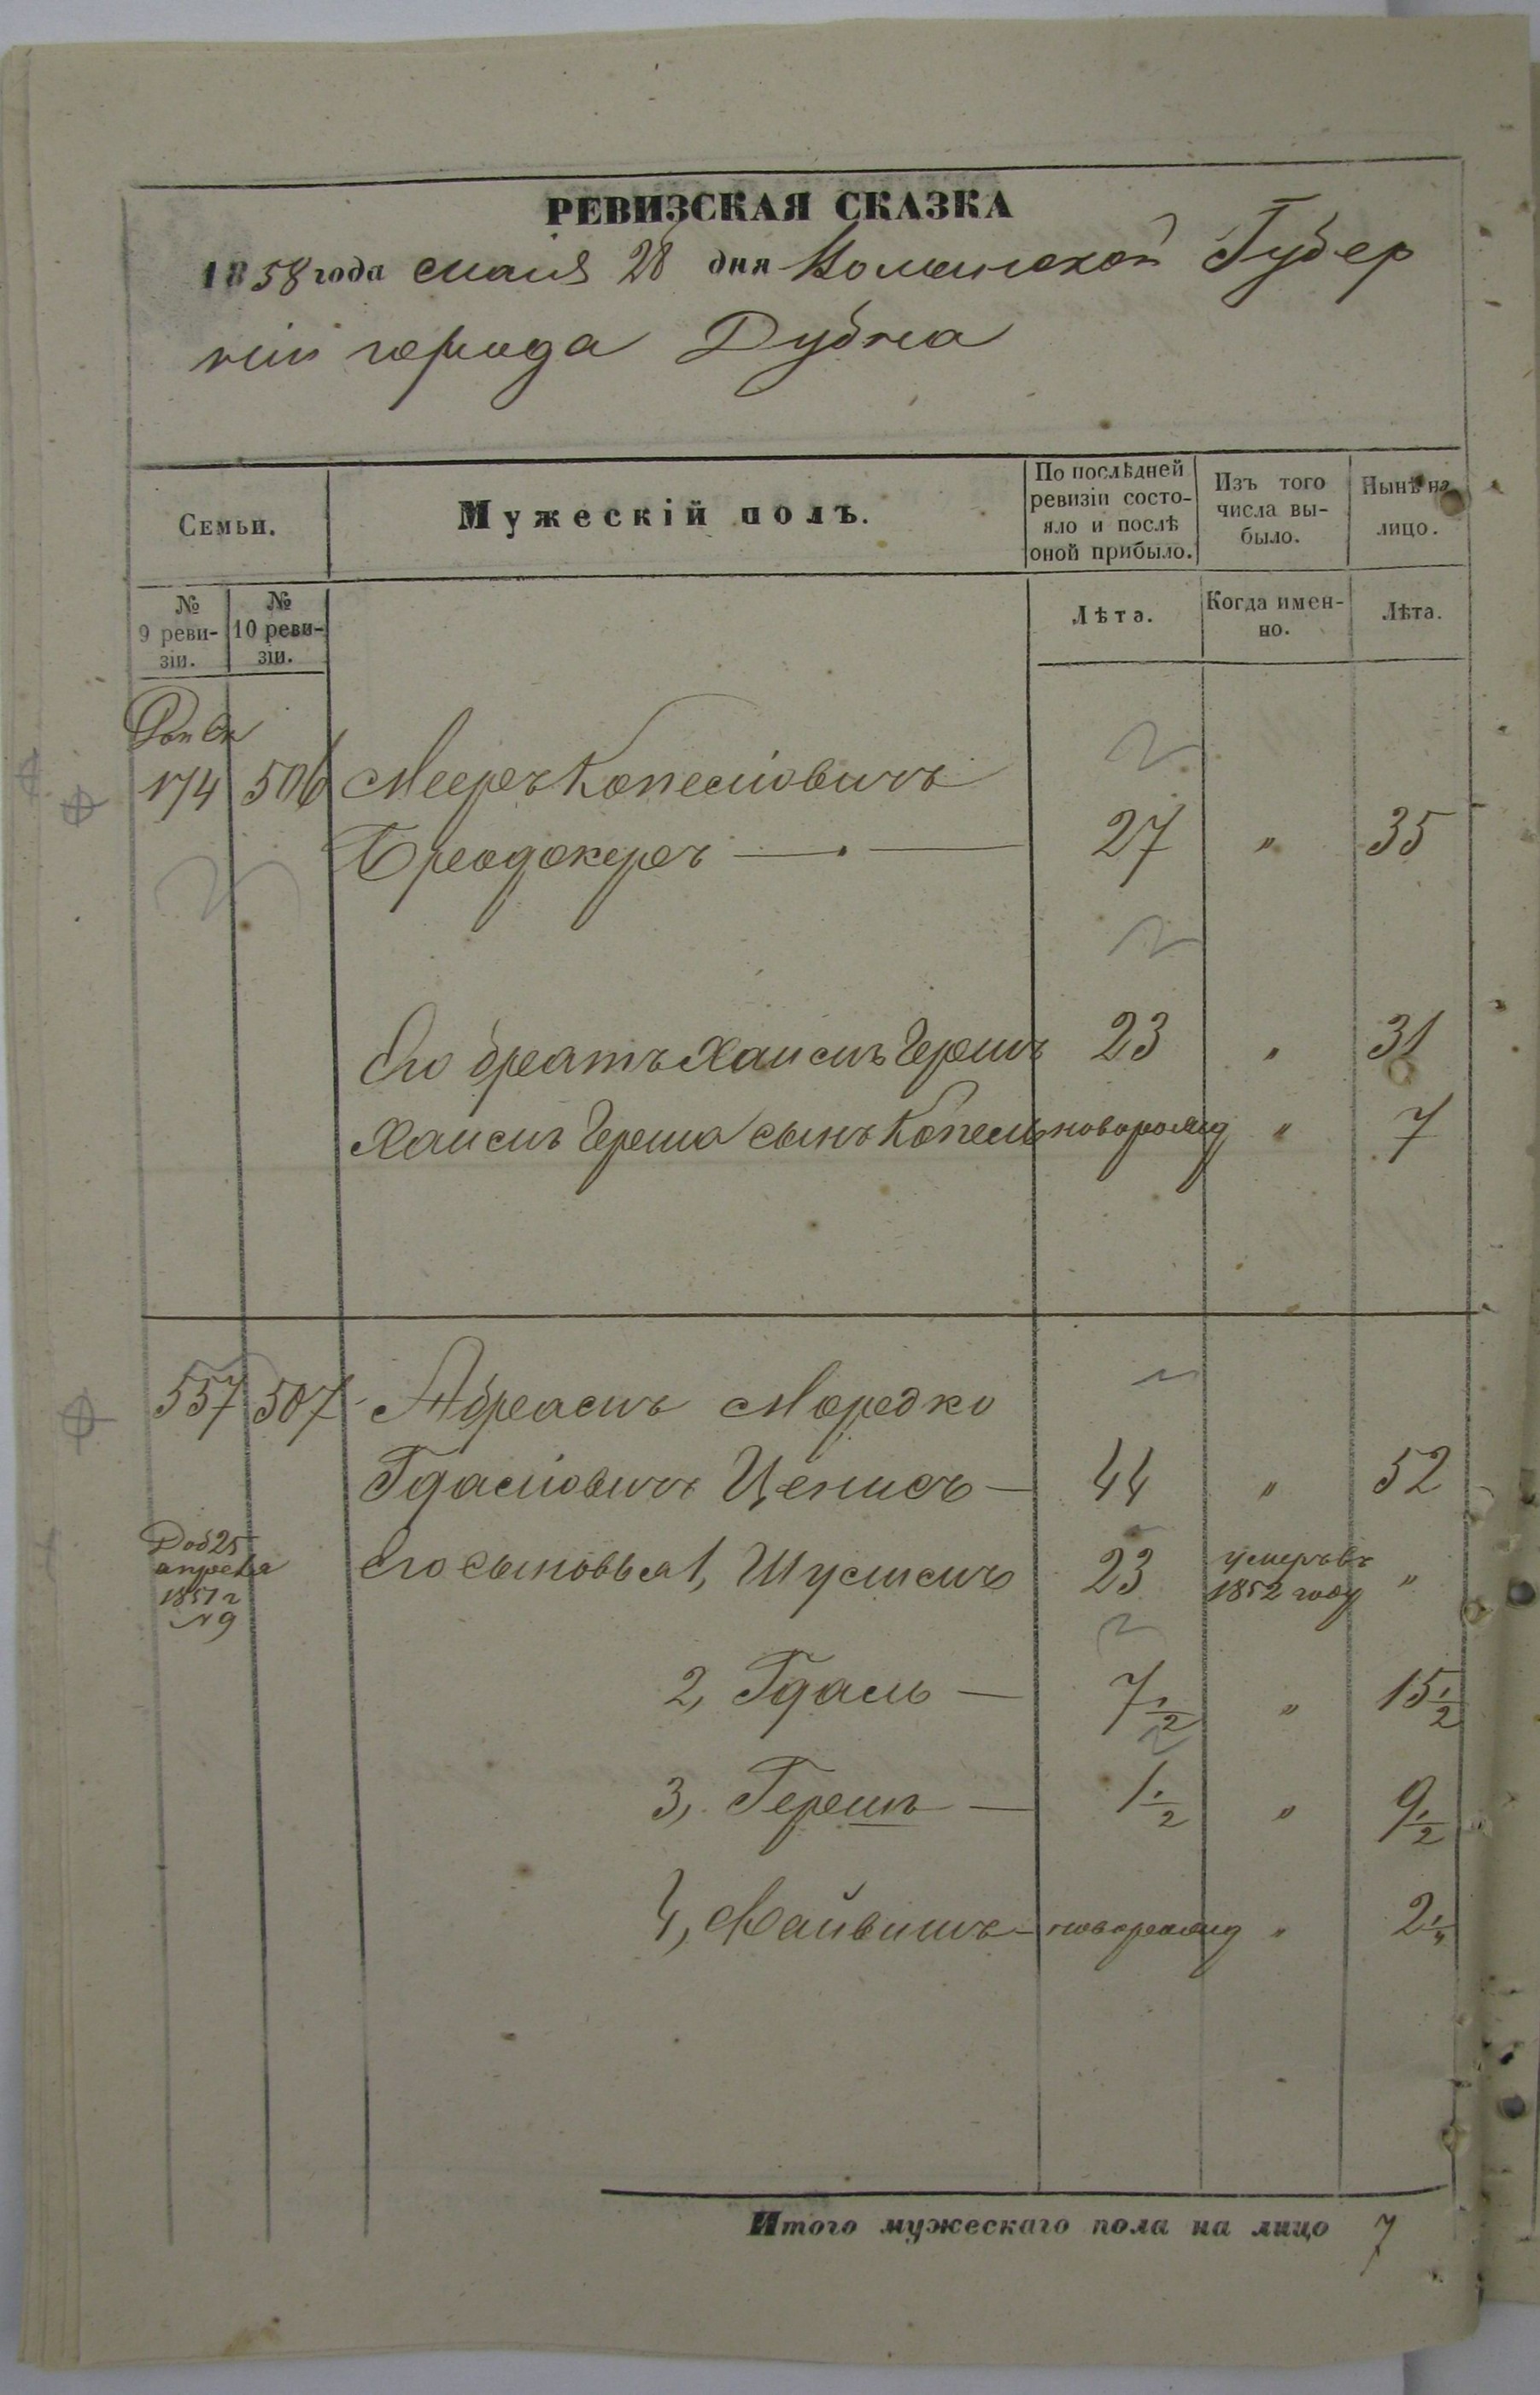 РЕВИЗСКАЯ СКАЗКА
1858 года мая 28 дня Волынской Губер
ніи города Дубна
Семьи.
Мужескій полъ.
По послѣдней ревизіи состо-
яло и послѣ
оной прибыло.
Изъ того
числа вы-
было.
Нынѣ на
лицо.
№
9 реви-
зіи.
№
10 реви-
зіи.
Лѣта.
Когда имен-
но.
Лѣта.
174 506 Мееръ Копелiовичъ
27 " 35
Его братъ Хаимъ Гершъ 23 " 31
Хаимъ Герша сынъ Копель новорожд " 7
557 507 Абрамъ Мордко
Гдаліовичъ Ценисъ — 44 " 52
Доб 25
апреля
1851 г
№ 9
Его сыновья 1, Шулимъ 23 умеръ въ
1852 году "
2, Гдаль — 7 1/2 " 15 1/2
3, Гершъ — 1 1/2 " 9 1/2
4, Файвишъ — новорожд " 2 1/4
Итого мужескаго пола на лицо 7